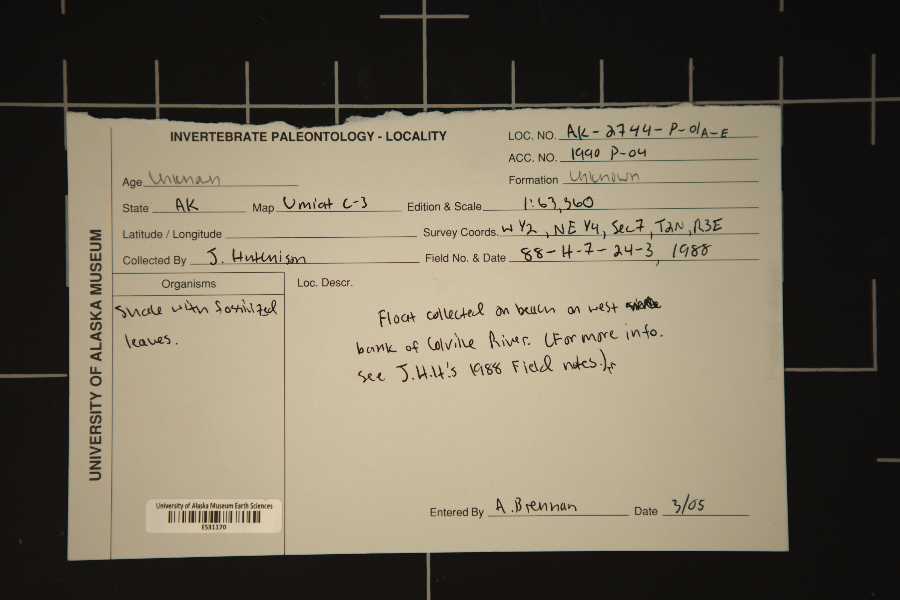 INVERTEBRATE PALEONTOLOGY - LOCALITY
LOC. NO. AK-2744-P-01A-E
ACC. NO. 1990 P-04
Age Unknown
Formation Unknown
State AK Map Umiat C-3 Edition & Scale 1:63,360
Latitude / Longitude Survey Coords. W 1/2, NE 1/4, Sec 7, T2N, R3E
Collected By J. Hutchison Field No. & Date 88-H-7-24-3, 1988
Organisms
Shale with fossilized
leaves.
Loc. Descr.
Float collected on beach on west
bank of Colville River. (For more info.
see J.H.H.'s 1988 Field notes.)
UNIVERSITY OF ALASKA MUSEUM
University of Alaska Museum Earth Sciences
ES31170
Entered By A. Brennan Date 3/05